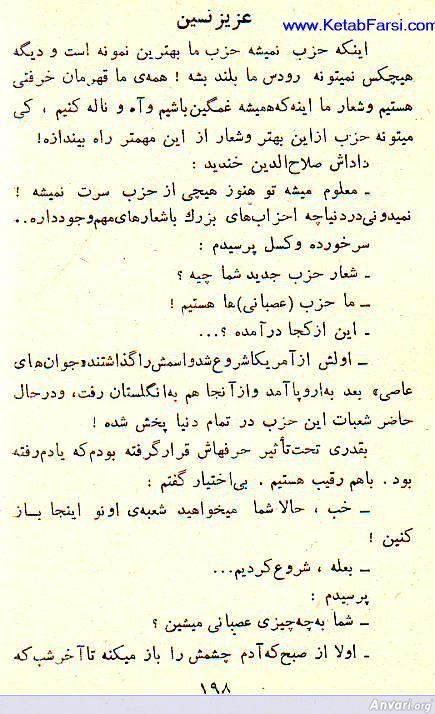 عزیز نسین
www.KetabFarsi.com
اینکه حزب نمیشه حزب ما بهترین نمونه است و دیگه
هیچکس نمیتونه رودس ما بلند بشه ! همه‌ی ما قهرمان خرفتی
هستیم وشعار ما اینه‌که‌همیشه غمگین‌باشیم و‌آه و ناله کنیم ، کی
میتونه حزب ازاین بهتر وشعار از این مهمتر راه بیندازه!
داداش صلاح‌الدین خندید :
ـ معلوم میشه تو هنوز هیچی از حزب سرت نمیشه !
نمیدونی‌دردنیاچه احزاب‌های بزرك باشعارهای‌مهم‌وجود‌داره..
سرخورده وکسل پرسیدم :
ـ شعار حزب جدید شما چیه ؟
ـ ما حزب (عصبانی)ها هستیم !
ـ این ازکجا درآمده ؟...
ـ اولش ازآمریکا‌شروع شدواسمش‌راگذاشتند«جوان‌های
عاصی» بعد به‌اروپاآمد وازآنجا هم به‌انگلستان رفت، ودرحال
حاضر شعبات این حزب در تمام دنیا پخش شده !
بقدری تحت‌تأثیر حرفهاش قرارگرفته بودم‌که یادم‌رفته
بود . باهم رقیب هستیم . بی‌اختیار گفتم :
ـ خب ، حالا شما میخواهید شعبه‌ی اونو اینجا بـاز
کنین !
ـ بعله ، شروع‌کردیم...
پرسیدم :
ـ شما به‌چه‌چیزی عصبانی میشین ؟
ـ اولا از صبح‌که‌آدم چشمش را باز میکنه تاآخرشب‌که
۱۹۸
Anvari.org